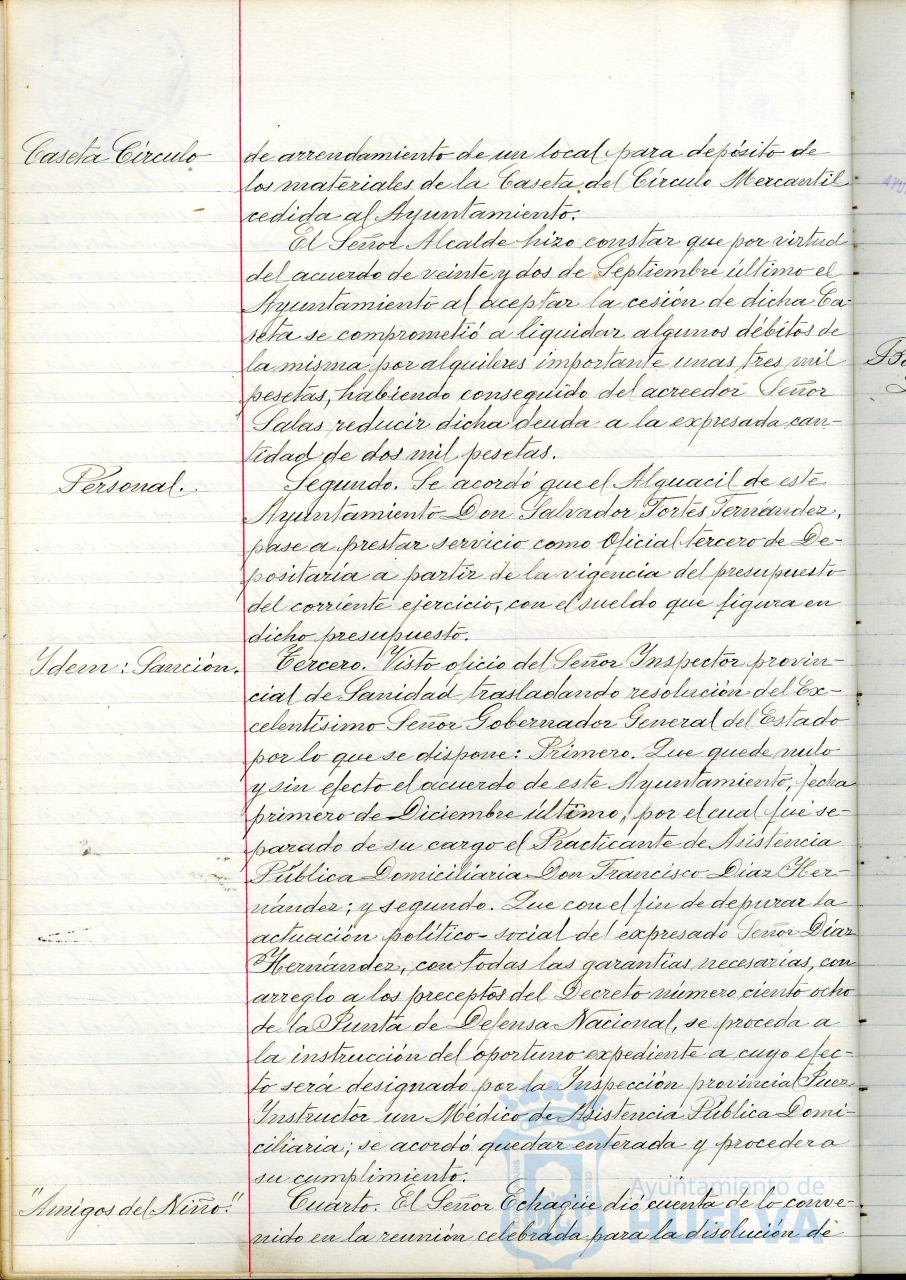 Caseta Círculo
de arrendamiento de un local para depósito de
los materiales de la Caseta del Círculo Mercantil
cedida al Ayuntamiento.
El Señor Alcalde hizo constar que por virtud
del acuerdo de veinte y dos de Septiembre último el
Ayuntamiento al aceptar la cesión de dicha Ca-
seta se comprometió a liquidar algunos débitos de
la misma por alquileres importante unas tres mil
pesetas, habiendo conseguido del acreedor Señor
Salas reducir dicha deuda a la expresada can-
tidad de dos mil pesetas.
Personal.
Segundo. Se acordó que el Alguacil de este
Ayuntamiento Don Salvador Fortes Fernández,
pase a prestar servicio como Oficial tercero de De-
positaría a partir de la vigencia del presupuesto
del corriente ejercicio, con el sueldo que figura en
dicho presupuesto.
Ydem: Sanción.
Tercero. Visto oficio del Señor Inspector provin-
cial de Sanidad trasladando resolución del Ex-
celentísimo Señor Gobernador General del Estado
por lo que se dispone: Primero. Que quede nulo
y sin efecto el acuerdo de este Ayuntamiento, fecha
primero de Diciembre último, por el cual fué se-
parado de su cargo el Practicante de Asistencia
Pública Domiciliaria Don Francisco Díaz Her-
nández; y segundo. Que con el fin de depurar la
actuación político-social del expresado Señor Díaz
Hernández, con todas las garantías necesarias, con
arreglo a los preceptos del Decreto número ciento ocho
de la Junta de Defensa Nacional, se proceda a
la instrucción del oportuno expediente a cuyo efec-
to será designado por la Inspección provincial Juez
Instructor un Médico de Asistencia Pública Domi-
ciliaria; se acordó quedar enterada y proceder a
su cumplimiento.
"Amigos del Niño."
Cuarto. El Señor Echagüe dió cuenta de lo conve-
nido en la reunión celebrada para la disolución de
Ayuntamiento de
HUELVA